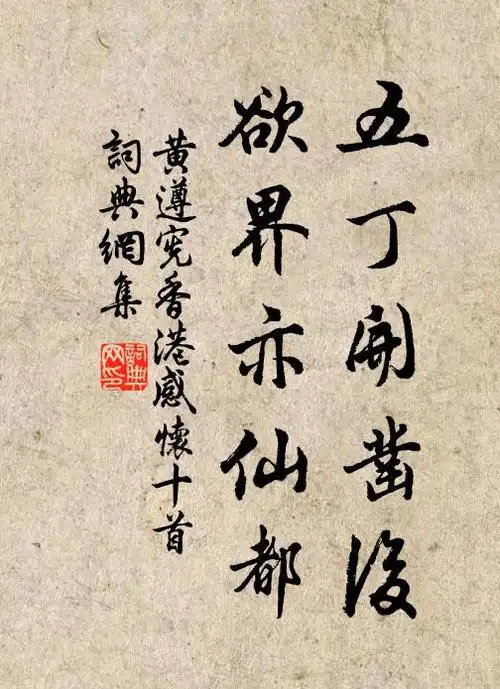 五丁開鑿後
欲界亦仙都
黃遵憲香港感懷十首
詞典網集
詞典網印